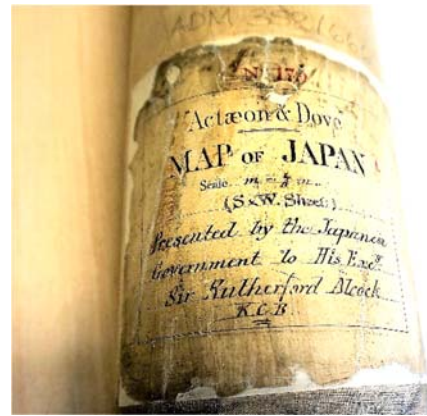 ADM 352/
No 175
Actæon & Dove
MAP OF JAPAN
Scale m =
(S.W. Sheet)
Presented by the Japanese
Government to His Excy
Sir Rutherford Alcock
K.C.B